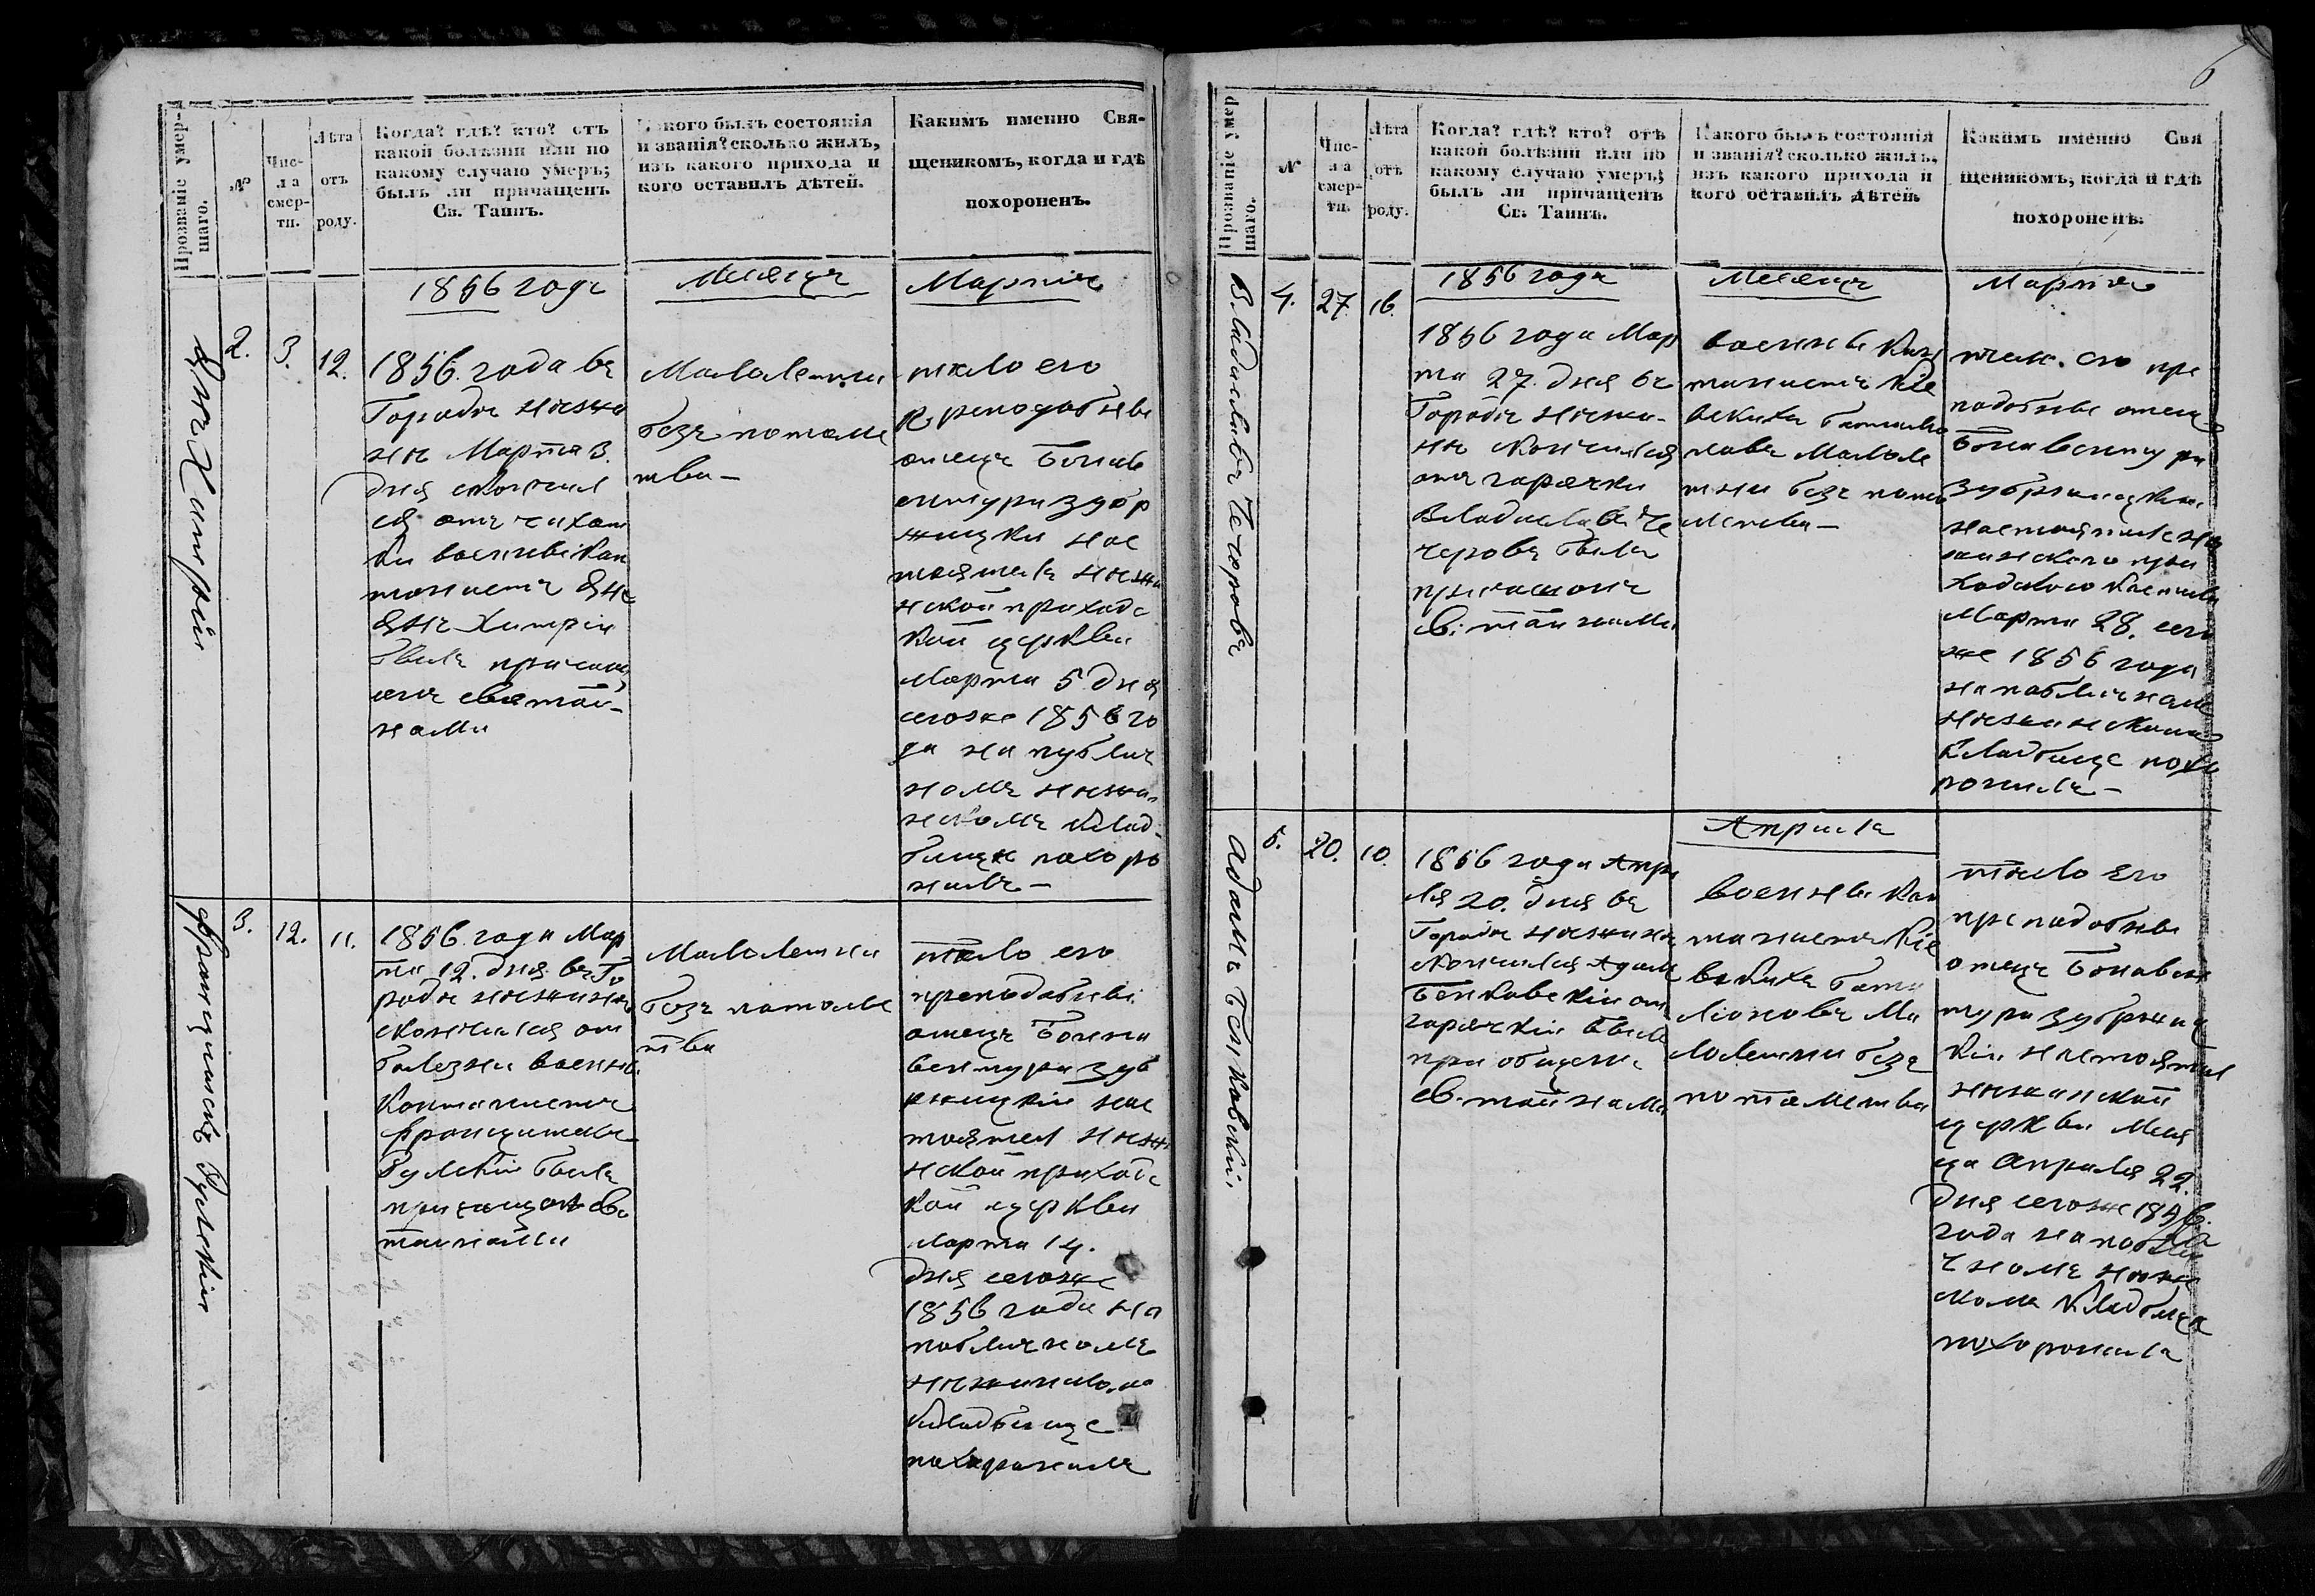 6
Прозваніе умер-
шаго.
№
Чис-
ла
смер-
ти.
Лѣта
отъ
роду.
Когда? гдѣ? кто? отъ
какой болѣзни или по
какому случаю умеръ;
былъ ли причащенъ
Св. Таинъ.
какого былъ состоянія
и званія? сколько жилъ,
изъ какого прихода и
кого оставилъ дѣтей.
Какимъ именно Свя-
щенникомъ, когда и гдѣ
похороненъ.
1856 года
Месяца
Марта
2.
3.
12.
1856. года въ
Городѣ Нѣжи
нѣ Марта 3.
дня скончал
ся отъ чахот
ки военный кан
тонистъ
былъ причащ
онъ свя тай-
нами
Малолетни
безъ потомс
тва-
тѣло его
преподобный
отецъ Бонав
ентура Зубр
жицки нас
тоятель Нѣжи
нской приходс
кой церкви
Марта 5 дня
сегоже 1856 го
да на публич
номъ Нѣжи-
нскомъ клад-
бищѣ похоро
нилъ-
Францишекъ Гульскій
3.
12.
11.
1856. года Мар
та 12. дня въ Го
родѣ Нѣжинѣ
скончался от
болезни военны
Контонистъ
Францишекъ
Гульскій былъ
причащонъ св.
тайнами
Малолетни
безъ потомс
тва
тѣло его
преподобный
отецъ Бонна
вентура Зуб
ржицкій нас
тоятел Нѣжи
нской приходс
кой церкви
Марта 14.
дня сегоже
1856 года на
побличномъ
кладбище
похоронилъ
Прозваніе умер
шаго.
№
Чис-
ла
смер-
ти.
Лѣта
отъ
роду.
Когда? гдѣ? кто? отъ
какой болѣзни или по
какому случаю умеръ;
былъ ли причащенъ
Св. Таинъ.
Какого былъ состоянія
и званія? сколько жилъ,
изъ какого прихода и
кого оставилъ дѣтей.
Какимъ именно Свя
щенникомъ, когда и гдѣ
похороненъ.
1856 года
Месяца
Марта
Владиславъ Чечровъ
4.
27.
16.
1856 года Мар
та 27. дня въ
Городѣ Нѣжи-
нѣ скончался
отъ горячки
Владиславъ Че
черовъ былъ
причашонъ
св. тайнами
военны Кан
тонистъ Кіе
вскихъ батальо
новъ Малоле
тни безъ пото
мства-
тело его пре
подобны отецъ
Бонавентура
Зубржицки
настоятель Нѣ
жинского при
ходского костела
Марта 28. сего
же 1856 года
на побличномъ
Нѣжинскомъ
кладбище похо
ронилъ-
Апрѣля
Адамъ Бенковскій
5.
20.
10.
1856 года Апре
ля 20. дня въ
Городѣ Нѣжинѣ
скончался Адамъ
Бенковскій от
горячкіи былъ
приобщенъ
св. тайнами
военны Кан
тонистъ Кіе
вскихъ бата
лионовъ Ма
лолетни безъ
потомства
тѣло его
преподобны
отецъ Бонавен
тура Зубржиц
кіи настоятел
Нежинской
церкви Меся
ца Апраля 22.
дня сегоже 1856.
года на побли
чномъ Неже
скомъ кладбищѣ
похоронилъ